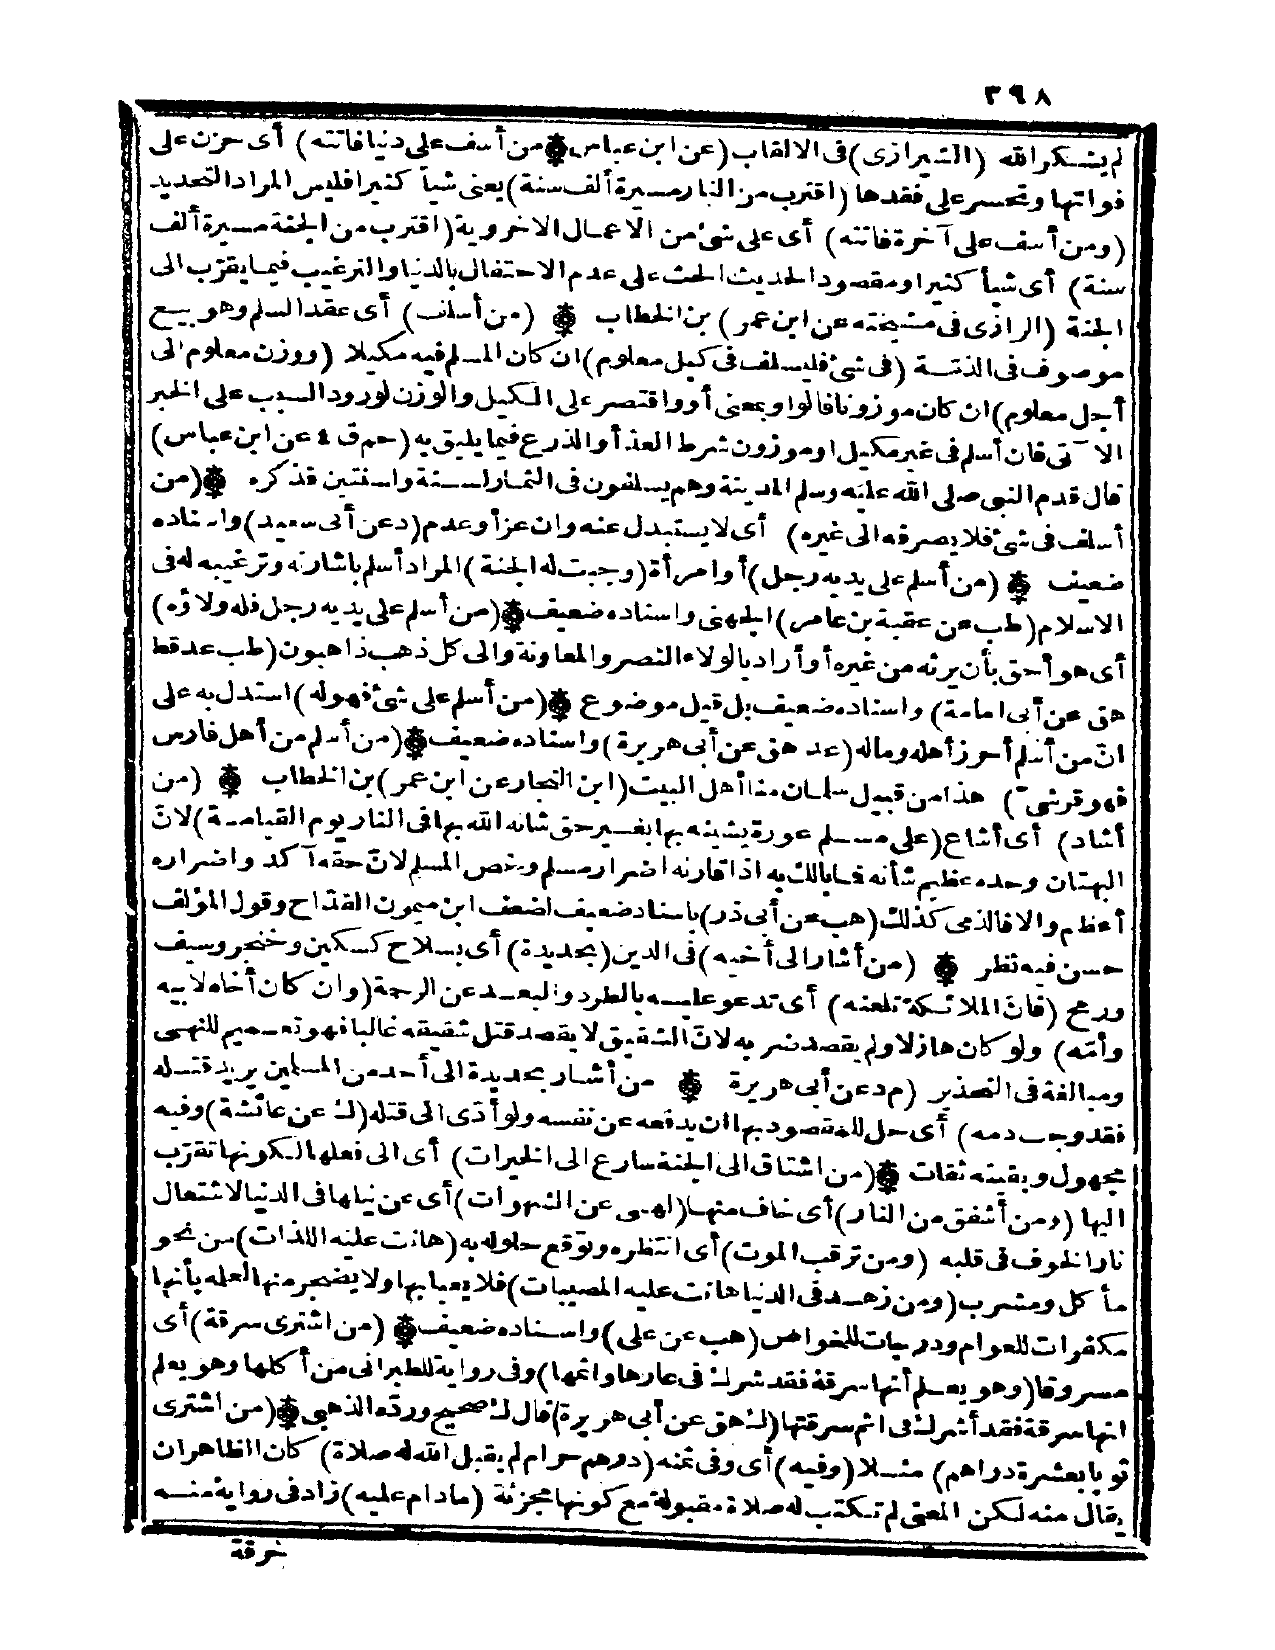 ٣٩٨
لم يشكر الله (الشيرازى) فى الالقاب (عن ابن عباس * من أسف على دنيا فاتته) أى حزن على
فواتها وتحسر على فقدها (اقترب من النار مسيرة ألف سنة) يعنى شيأ كثيرا فليس المراد التحديد
(ومن أسف على آخرة فاتته) أى على شئ من الاعمال الاخروية (اقترب من الجنة مسيرة ألف
سنة) أى شيأ كثيرا ومقصود الحديث الحث على عدم الاحتفال بالدنيا والترغيب فيما يقرّب الى
الجنة (الرازى فى مشيخته عن ابن عمر) بن الخطاب * (من أسلف) أى عقد السلم وهو بيع
موصوف فى الذمّة (فى شئ فليسلف فى كيل معلوم) ان كان المسلم فيه مكيلا (ووزن معلوم الى
أجل معلوم) ان كان موزونا فالواو بمعنى أو واقتصر على الكيل والوزن لورود السبب على الخبر
الآتى فان أسلم فى غير مكيل او موزون شرط العدّ أو الذرع فيما يليق به (حم ق ٤ عن ابن عباس)
قال قدم النبى صلى الله عليه وسلم المدينة وهم يسلفون فى الثمار لسنة ولسنتين فذكره * (من
أسلف فى شئ فلا يصرفه الى غيره) أى لا يستبدل عنه وان عز أو عدم (د عن أبى سعيد) واسناده
ضعيف * (من أسلم على يديه رجل) أو امرأة (وجبت له الجنة) المراد أسلم باشارته وترغيبه له فى
الاسلام (طب عن عقبة بن عامر) الجهنى واسناده ضعيف * (من أسلم على يديه رجل فله ولاؤه)
أى هو أحق بأن يرثه من غيره أو أراد بالولاء النصر والمعاونة والى كل ذهب ذاهبون (طب عد قط
هق عن أبى امامة) واسناده ضعيف بل قيل موضوع * (من أسلم على شئ فهو له) استدل به على
انّ من أسلم أحرز أهله وماله (عد هق عن أبى هريرة) واسناده ضعيف * (من أسلم من أهل فارس
فهو قرشىّ) هذا من قبيل سلمان منا أهل البيت (ابن النجار عن ابن عمر) بن الخطاب * (من
أشاد) أى أشاع (على مسلم عورة يشينه بها بغير حق شانه الله بها فى النار يوم القيامة) لانّ
البهتان وحده عظيم شأنه فما بالك به اذا قارنه اضرار مسلم وخص المسلم لانّ حقه آكد واضراره
أعظم والا فالذمى كذلك (هب عن أبى ذر) باسناد ضعيف لضعف ابن ميمون القدّاح وقول المؤلف
حسن فيه نظر * (من أشار الى أخيه) فى الدين (بحديدة) أى بسلاح كسكين وخنجر وسيف
ورمح (فانّ الملائكة تلعنه) أى تدعو عليه بالطرد والبعد عن الرحمة (وان كان أخاه لابيه
وأمّه) ولو كان هازلا ولم يقصد ضربه لانّ الشقيق لا يقصد قتل شقيقه غالبا فهو تعميم للنهى
ومبالغة فى التحذير (م د عن أبى هريرة * من أشار بحديدة الى أحد من المسلمين يريد قتله
فقد وجب دمه) أى حل للمقصود بها ان يدفعه عن نفسه ولو أدّى الى قتله (ك عن عائشة) وفيه
مجهول وبقيته ثقات * (من اشتاق الى الجنة سارع الى الخيرات) أى الى فعلها لكونها تقرّب
اليها (ومن أشفق من النار) أى خاف منها (لهى عن الشهوات) أى عن نيلها فى الدنيا لاشتعال
نار الخوف فى قلبه (ومن ترقب الموت) أى انتظره وتوقع حلوله به (هانت عليه اللذات) من نحو
مأكل ومشرب (ومن زهد فى الدنيا هانت عليه المصيبات) فلا يعبأ بها ولا يضجر منها لعلمه بأنها
مكفرات للعوام ودرجات للخواص (هب عن على) واسناده ضعيف * (من اشترى سرقة) أى
مسروقا (وهو يعلم أنها سرقة فقد شرك فى عارها واثمها) وفى رواية للطبرانى من أكلها وهو يعلم
انها سرقة فقد أشرك فى اثم سرقتها (ك هق عن أبى هريرة) قال ك صحيح وردّه الذهبى * (من اشترى
ثوبا بعشرة دراهم) مثلا (وفيه) أى وفى ثمنه (درهم حرام لم يقبل الله له صلاة) كان الظاهر ان
يقال منه لكن المعنى لم تكتب له صلاة مقبولة مع كونها مجزئة (مادام عليه) زاد فى رواية منه
خرقة